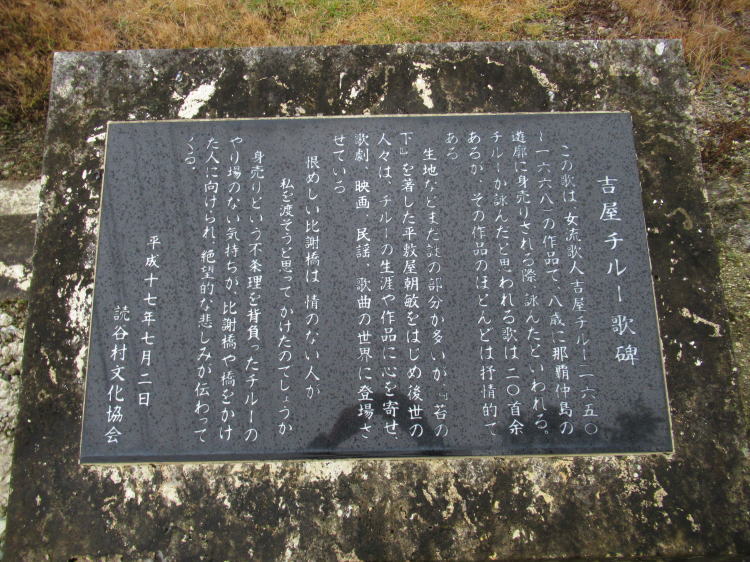 吉屋チルー歌碑
この歌は、女流歌人吉屋チルー(一六五〇
〜一六六八)の作品で、八歳に那覇仲島の
遊廓に身売りされる際、詠んだといわれる。
チルーが詠んだと思われる歌は二〇首余
あるが、その作品のほとんどは抒情的で
ある
生地などまだ謎の部分が多いが、『若の
下』を著した平敷屋朝敏をはじめ後世の
人々は、チルーの生涯や作品に心を寄せ、
歌劇、映画、民謡、歌曲の世界に登場さ
せている
恨めしい比謝橋は 情のない人が
私を渡そうと思ってかけたのでしょうか
身売りという不条理を背負ったチルーの
やり場のない気持ちが、比謝橋や橋をかけ
た人に向けられ、絶望的な悲しみが伝わって
くる。
平成十七年七月二日
読谷村文化協会